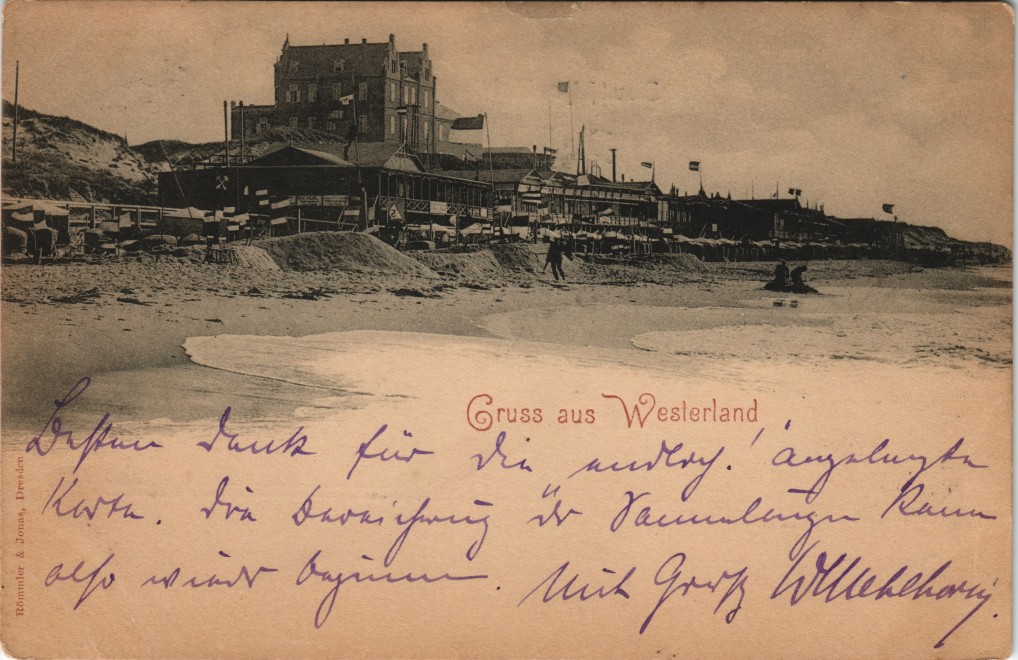 Gruss aus Westerland
Besten Dank für die endlich! angelangte
Karte. Die Bereicherung der Sammlungen kann
also wieder beginnen. Mit Gruß
Römmler & Jonas, Dresden